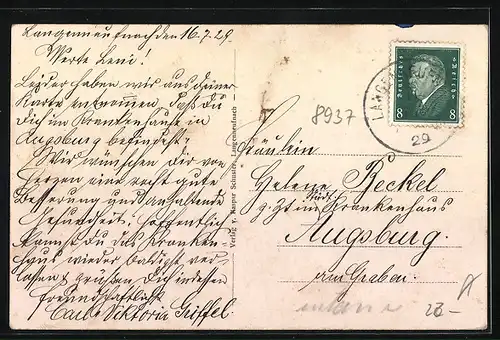 Langenneufnach den 16.7.29.
Werte Leni!
Leider haben wir aus Deiner
Karte entnommen, daß Du
Dich im Krankenhause in
Augsburg befindest.
Wir wünschen Dir von
Herzen eine recht gute
Besserung und anhaltende
Gesundheit. Hoffentlich
kannst Du das Kranken-
haus wieder baldigst ver-
lassen & grüßen Dich indessen
Freundschaftlichst
Carl & Viktoria Griffel.
Verlag v. Kaspar Schuster, Langenneufnach
Deutsches Reich
8 8
29
8937
Fräulein
Helene Beckel
z. Zt. im städt. Krankenhaus
Augsburg
am Graben.